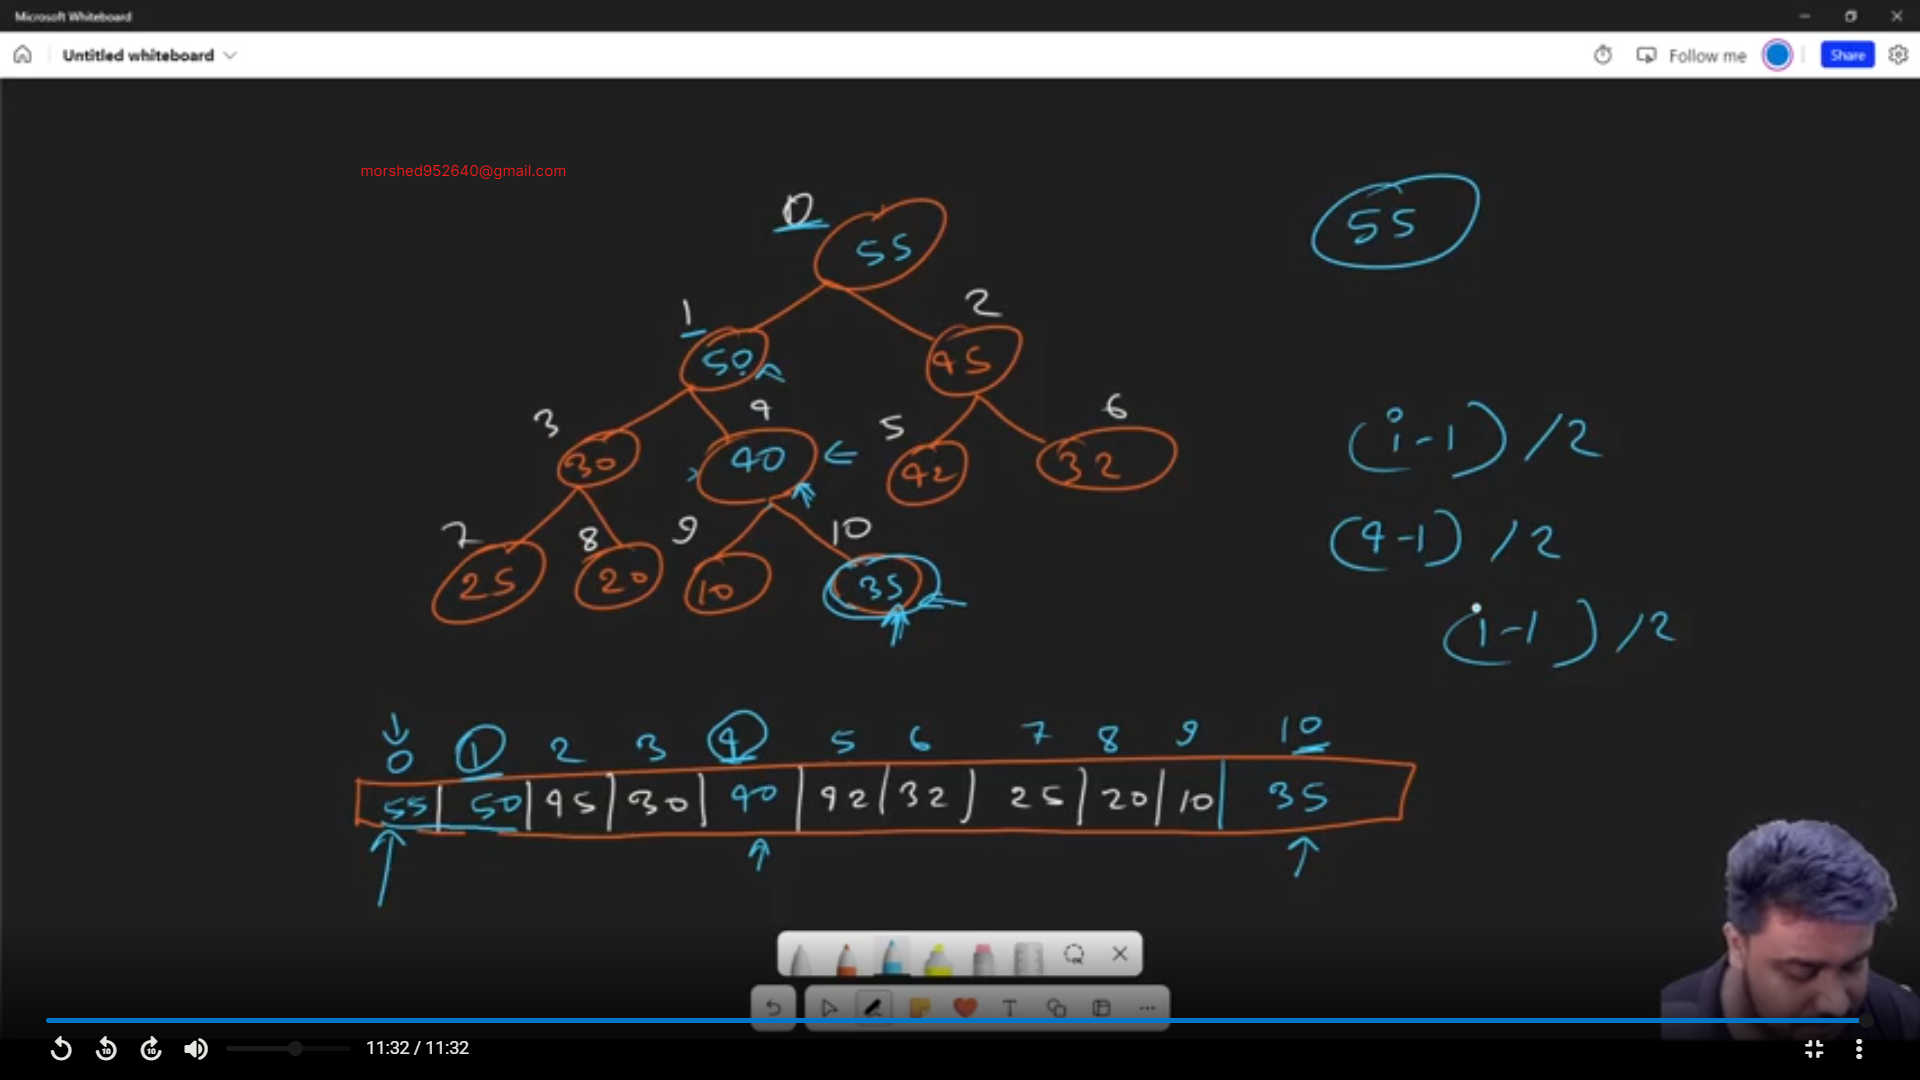 Microsoft Whiteboard
Untitled whiteboard
Follow me
Share
morshed952640@gmail.com
0
55
55
1
2
50
45
3
4
5
6
30
40
42
32
(i-1)/2
7
8
9
10
25
20
10
35
(4-1)/2
(i-1)/2
0 1 2 3 4 5 6 7 8 9 10
55 50 45 30 40 42 32 25 20 10 35
T
10 10
11:32 / 11:32